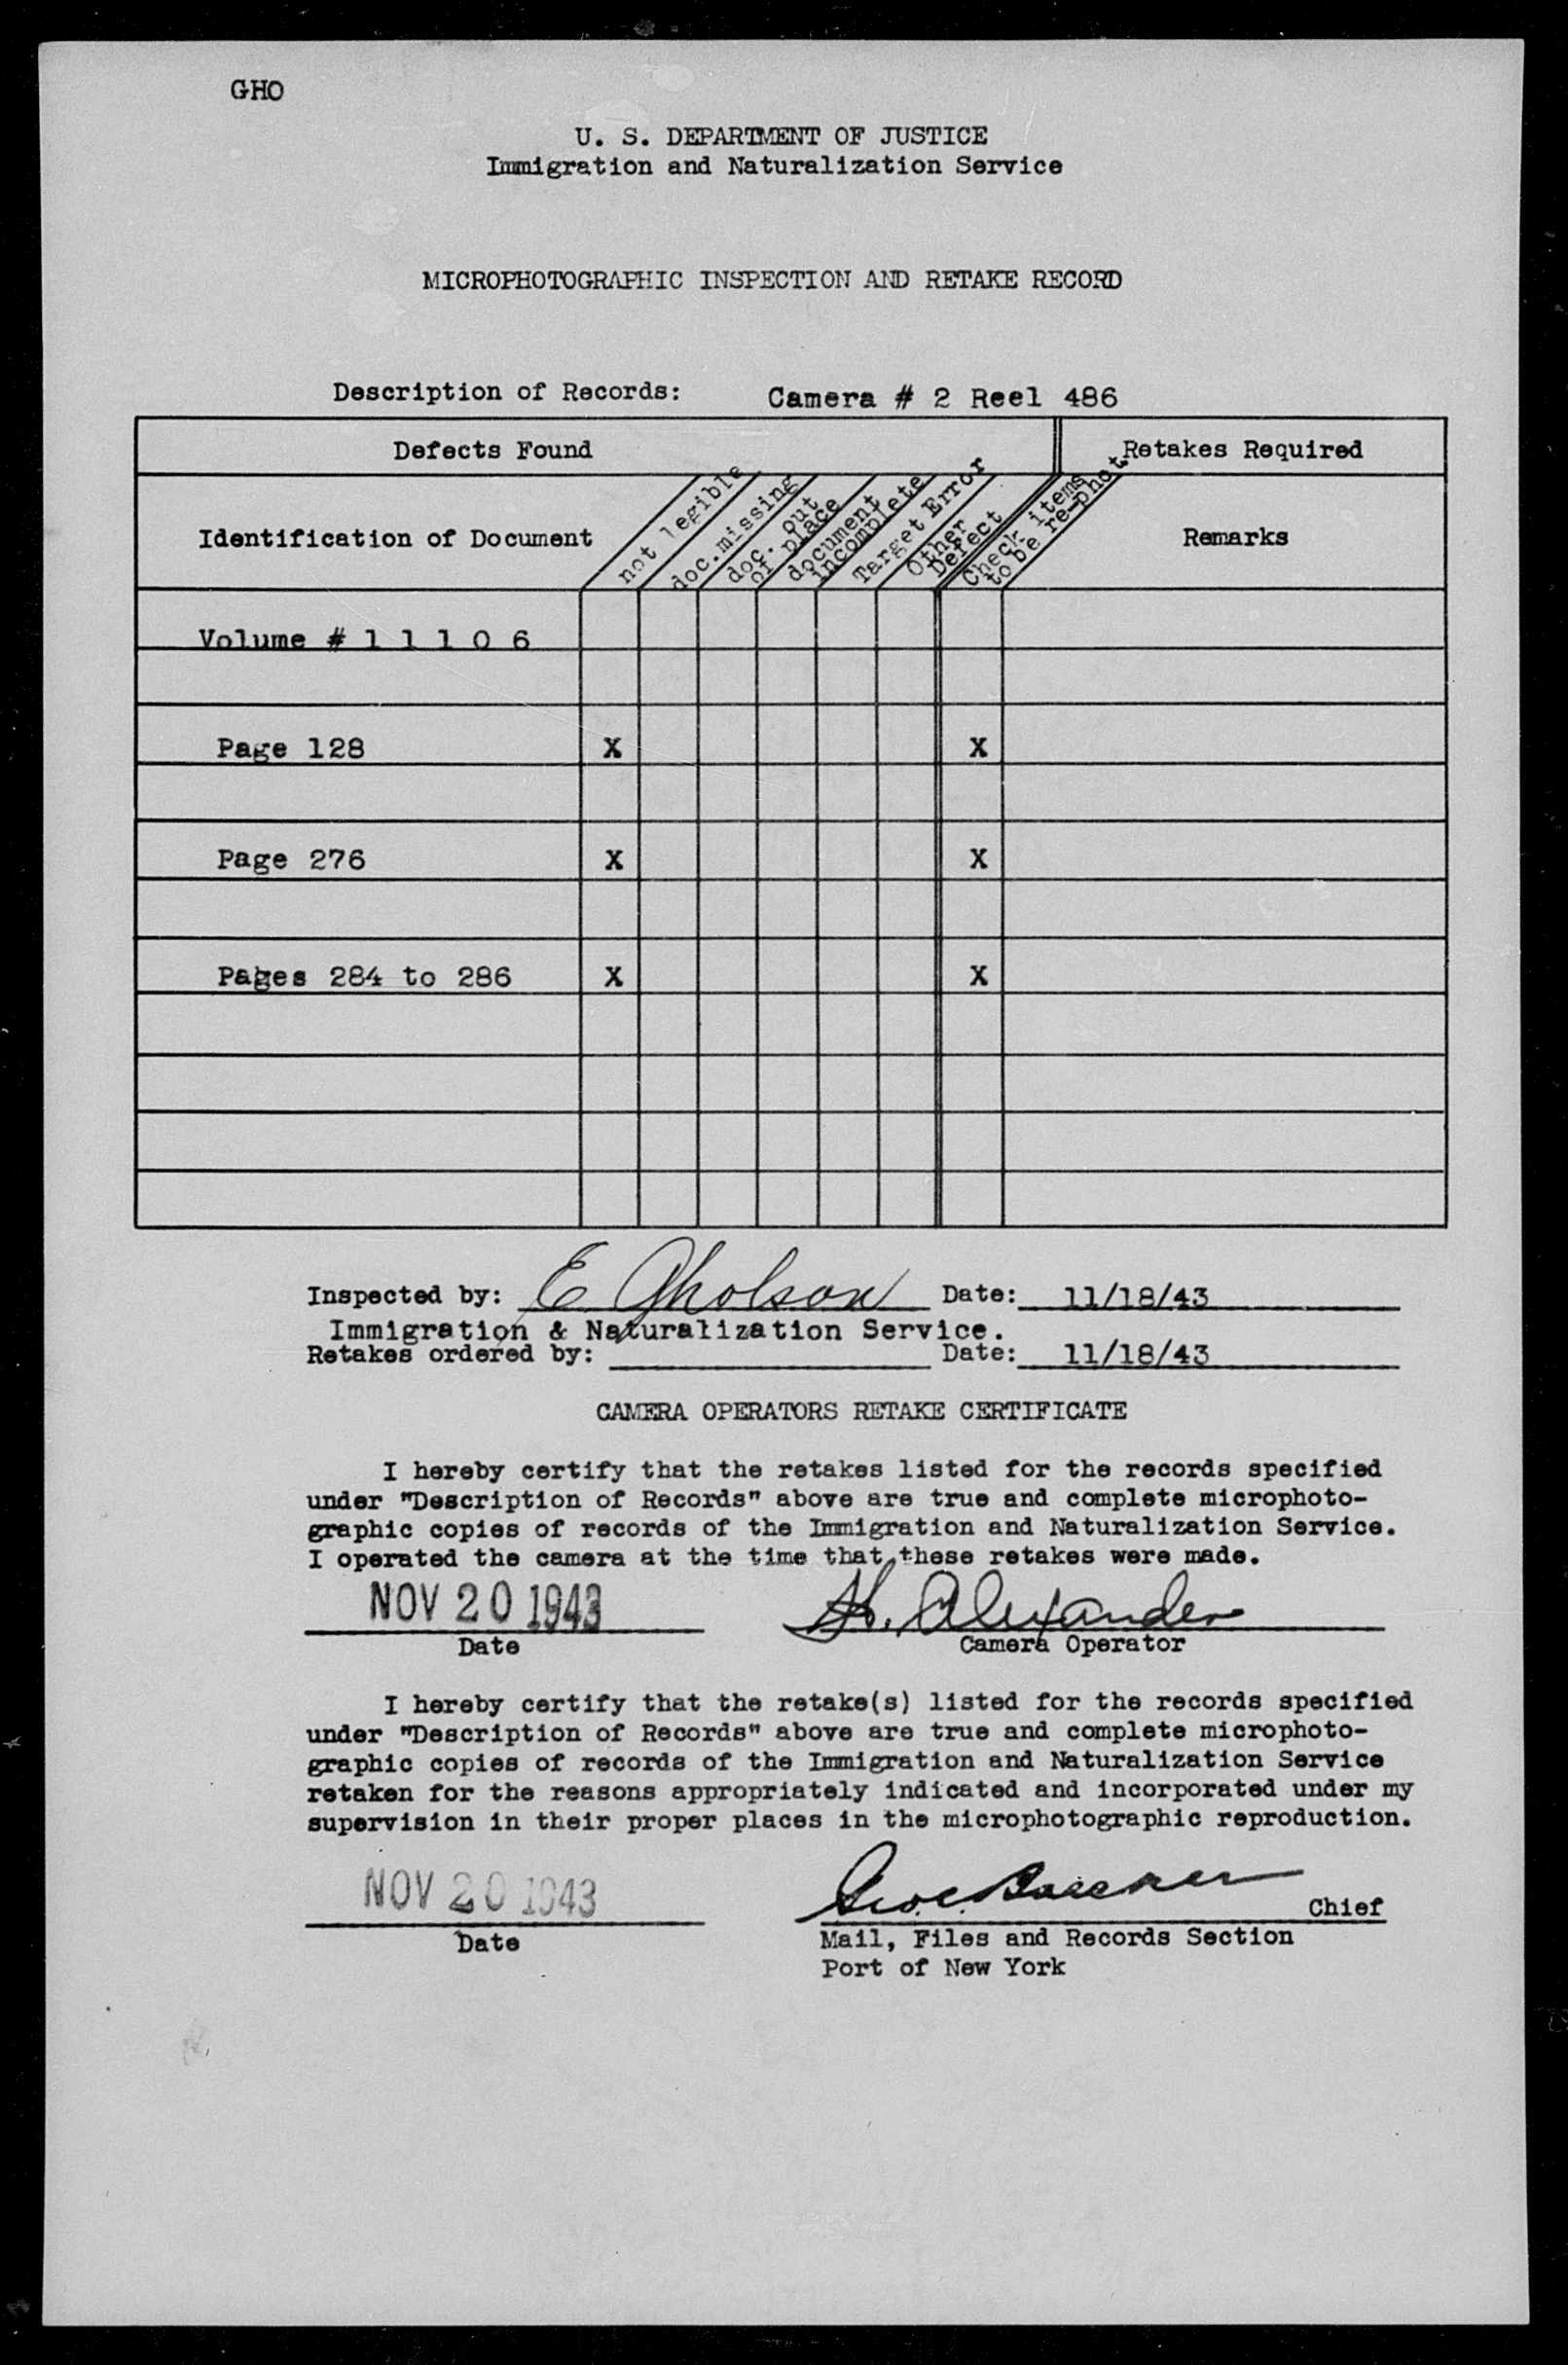 GHO
U. S. DEPARTMENT OF JUSTICE
Immigration and Naturalization Service
MICROPHOTOGRAPHIC INSPECTION AND RETAKE RECORD
Description of Records: Camera # 2 Reel 486
Defects Found Retakes Required
Identification of Document not legible doc.missing doc. out of place document incomplete Target Error Other Defect Check items to be re-phot Remarks
Volume # 1 1 1 0 6
Page 128 X X
Page 276 X X
Pages 284 to 286 X X
Inspected by: E Gholson Date: 11/18/43
Immigration & Naturalization Service.
Retakes ordered by: Date: 11/18/43
CAMERA OPERATORS RETAKE CERTIFICATE
I hereby certify that the retakes listed for the records specified
under "Description of Records" above are true and complete microphoto-
graphic copies of records of the Immigration and Naturalization Service.
I operated the camera at the time that these retakes were made.
NOV 20 1943 H. Alexander
Date Camera Operator
I hereby certify that the retake(s) listed for the records specified
under "Description of Records" above are true and complete microphoto-
graphic copies of records of the Immigration and Naturalization Service
retaken for the reasons appropriately indicated and incorporated under my
supervision in their proper places in the microphotographic reproduction.
NOV 20 1943 Chief
Date Mail, Files and Records Section
Port of New York